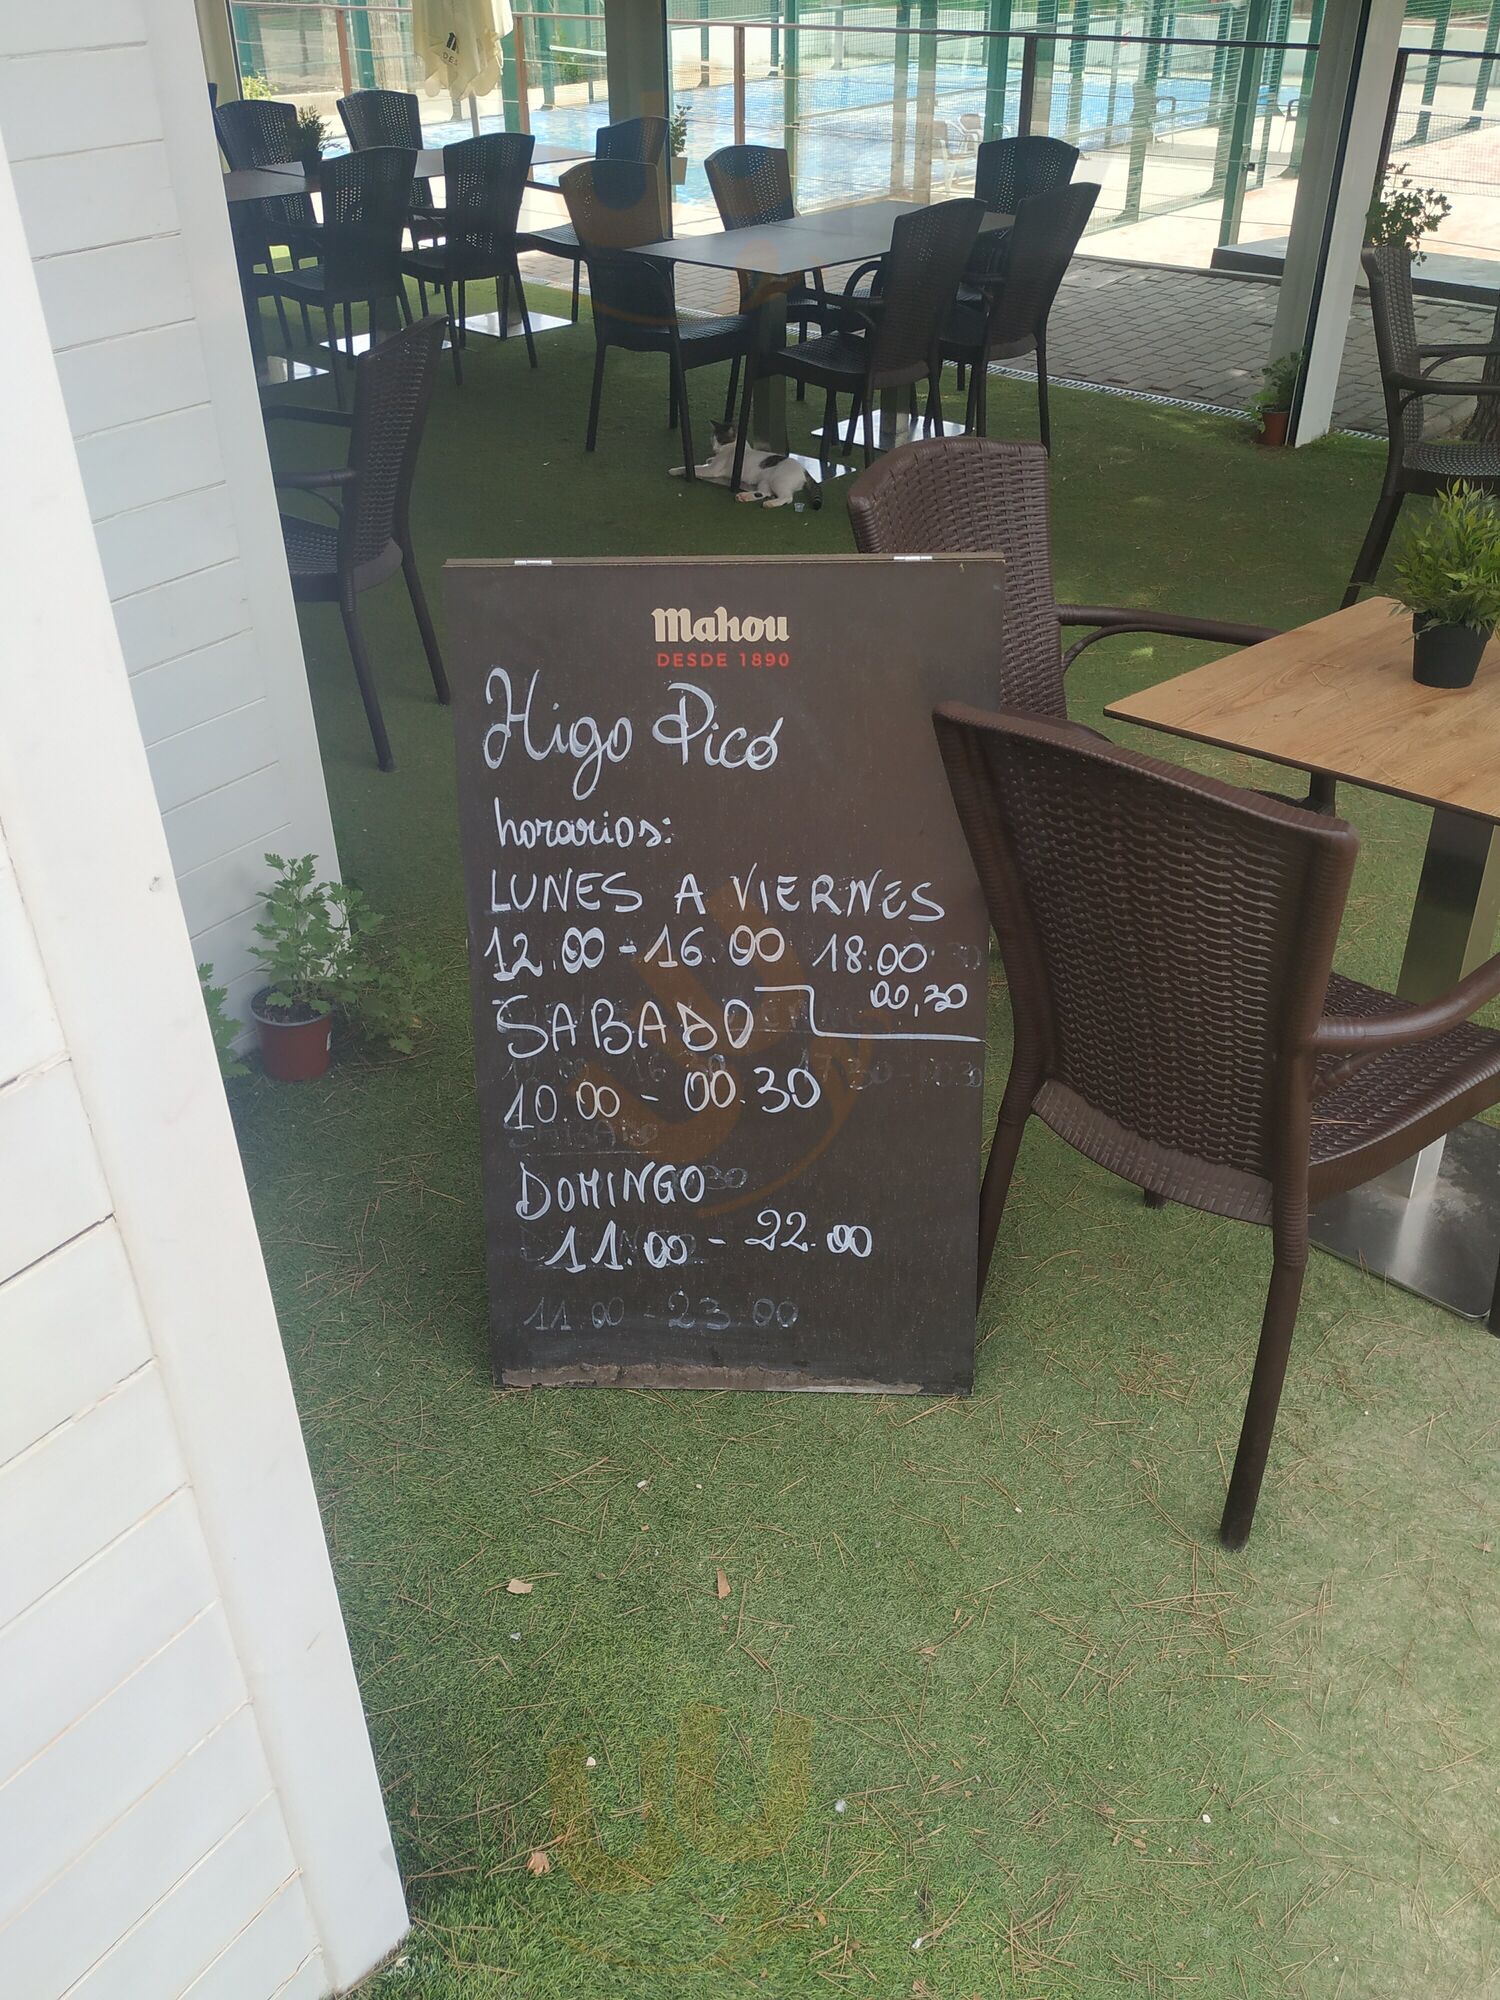 Mahou
DESDE 1890
Higo Picó
horarios:
LUNES A VIERNES
12.00-16.00 18.00
00,30
SABADO
10.00 - 00.30
DOMINGO
11.00 - 22.00
11.00 - 23.00